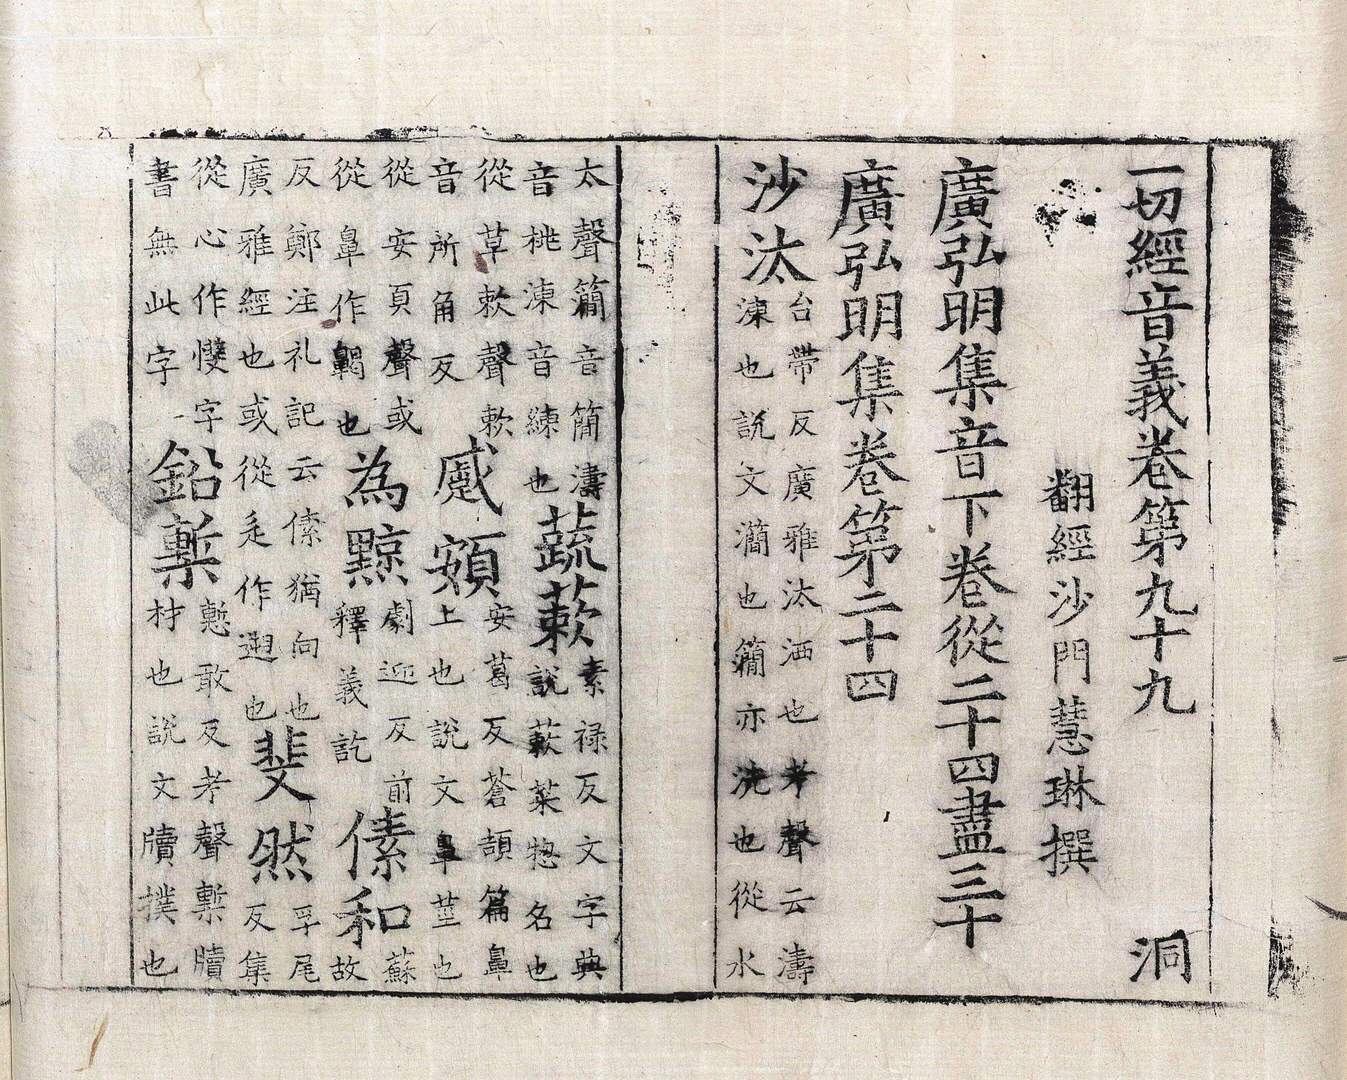 一切經音義卷第九十九 洞
翻經沙門慧琳撰
廣弘明集音下卷從二十四盡三十
廣弘明集卷第二十四
沙汰台帶反廣雅汰洒也考聲云濤涷也說文灡也籣亦洗也從水
太聲籣音簡濤音桃涷音練也蔬蔌素祿反文字典說蔌菜惣名也
從草欶聲欶音所角反慼頞安葛反蒼頡篇鼻上也說文鼻莖也
從安頁聲或從鼻作齃也為黥劇迎反前釋義訖傃和蘇故
反鄭注礼記云傃猶向也廣雅經也或從辵作遡也斐然孚尾反集
從心作字書無此字鉛槧慙敢反考聲槧牘材也說文牘撲也